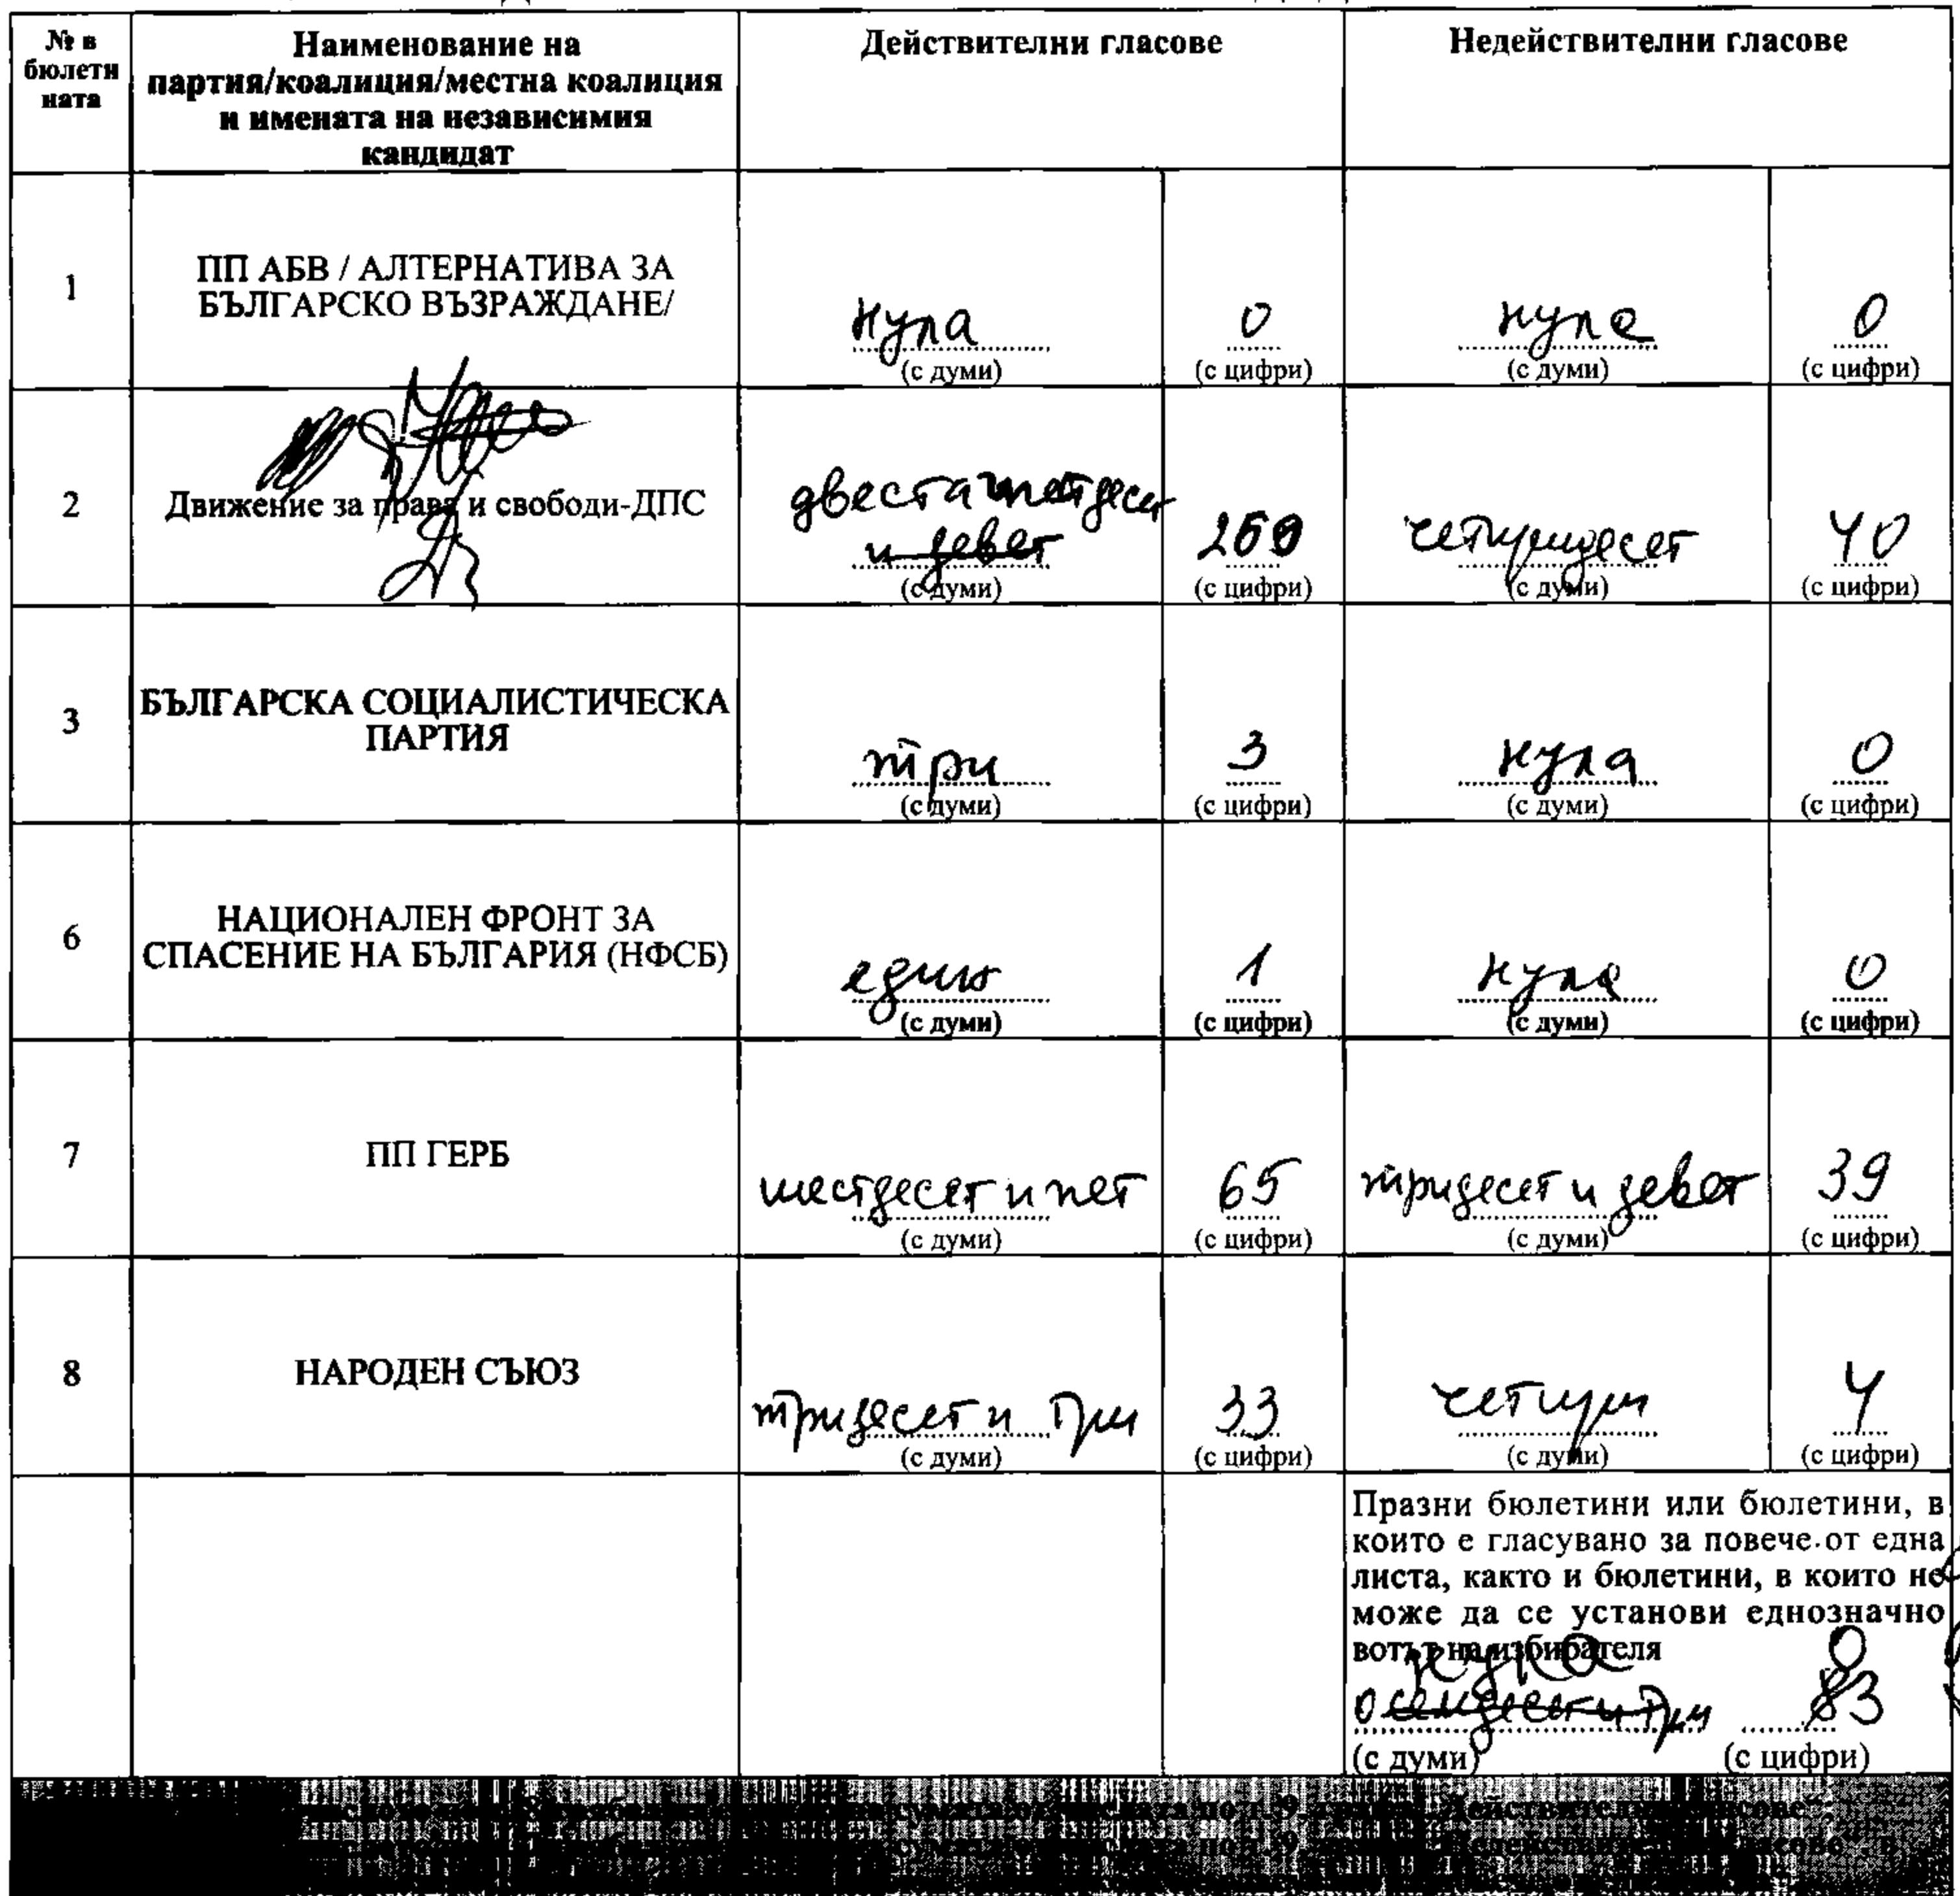 № в бюлетината
Наименование на партия/коалиция/местна коалиция и имената на независимия кандидат
Действителни гласове
Недействителни гласове
1
ПП АБВ / АЛТЕРНАТИВА ЗА
БЪЛГАРСКО ВЪЗРАЖДАНЕ/
нула
0
нула
0
(с думи)
(с цифри)
(с думи)
(с цифри)
2
Движение за права и свободи-ДПС
двеста
и девет
четиридесет
40
(с думи)
(с цифри)
(с думи)
(с цифри)
3
БЪЛГАРСКА СОЦИАЛИСТИЧЕСКА
ПАРТИЯ
три
3
нула
0
(с думи)
(с цифри)
(с думи)
(с цифри)
6
НАЦИОНАЛЕН ФРОНТ ЗА
СПАСЕНИЕ НА БЪЛГАРИЯ (НФСБ)
един
1
нула
0
(с думи)
(с цифри)
(с думи)
(с цифри)
7
ПП ГЕРБ
шестдесет и пет
65
тридесет и девет
39
(с думи)
(с цифри)
(с думи)
(с цифри)
8
НАРОДЕН СЪЮЗ
тридесет и три
33
четири
4
(с думи)
(с цифри)
(с думи)
(с цифри)
Празни бюлетини или бюлетини, в
които е гласувано за повече от една
листа, както и бюлетини, в които не
може да се установи еднозначно
вотът на избирателя
нула
0
осемдесет и три
83
(с думи)
(с цифри)